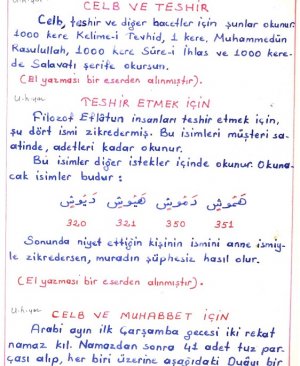 U-h-ya
CELB VE TESHİR
Celb, teshir ve diğer hacetler için şunlar okunur.
1000 kere Kelime-i Tevhid, 1 kere, Muhammedün
Rasulullah, 1000 kere Sûre-i İhlas ve 1000 kere-
de Salavatı şerife okursun.
(El yazması bir eserden alınmıştır).
U-h-ya
TESHİR ETMEK İÇİN
Filozof Eflâtun insanları teshir etmek için,
şu dört ismi zikredermiş. Bu isimleri müşteri sa-
atinde, adetleri kadar okunur.
Bu isimler diğer istekler içinde okunur. Okuna-
cak isimler budur :
هَمُوشٍ دَمُوشٍ هَيُوشٍ دَيُوشٍ
320 321 350 351
Sonunda niyet ettiğin kişinin ismini anne ismiy-
le zikredersen, muradın şüphesiz hasıl olur.
(El yazması bir eserden alınmıştır).
U-h-ya
CELB VE MUHABBET İÇİN
Arabi ayın ilk Çarşamba gecesi iki rekat
namaz kıl. Namazdan sonra 41 adet tuz par-
çası alıp, her biri üzerine aşağıdaki Duâyı bir